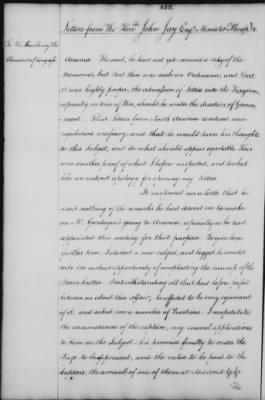 Letters from The Honble John Jay Esqr Minister Plenipy &c
To the Honorable The
President of Congress
America. He said, he had not yet received a copy of the
Memorial, but that there was such an Ordinance, and that
it was highly proper, the admission of letters into the Kingdom,
especially in time of War, should be under the direction of Govern-
ment. That letters from North America rendered some
regulations necessary, and that he would turn his thoughts
to this Subject, and do what should appear equitable. This
was another proof of what I before suspected, and looked
like an indirect apology for opening my letters.
It surprised me a little that he
said nothing of the remarks he had desired me to make
on Mr. Gardoqui's going to America, especially as he had
appointed this meeting for that purpose. To give him
further time, I started a new subject, and begged he would
take the earliest opportunity of completing the business of the
Dover Cutter. Notwithstanding all that had before passed
between us about this affair, he affected to be very ignorant
of it, and asked me a number of Questions. I recapitulated
the circumstances of the capture, my several applications
to him on the Subject, his promise finally to order the
Prize to be appraised, and the value to be paid to the
Captors, the arrival of one of them at Madrid &ca &ca
He